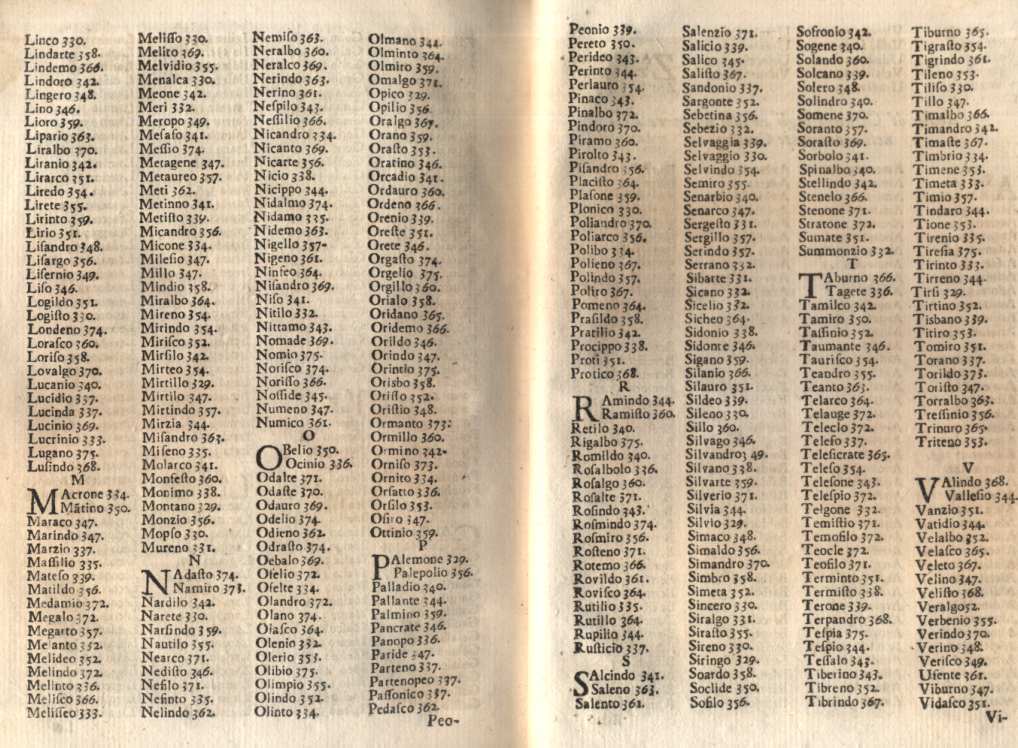 Linco 330.
Lindarte 358.
Lindemo 366.
Lindoro 342.
Lingero 348.
Lino 346.
Lioro 359.
Lipario 363.
Liralbo 370.
Liranio 342.
Lirarco 351.
Liredo 354.
Lirete 355.
Lirinto 359.
Lirio 351.
Liſandro 348.
Liſargo 356.
Liſernio 349.
Liſo 346.
Logildo 351.
Logiſto 330.
Londeno 374.
Loraſco 360.
Loriſo 358.
Lovalgo 370.
Lucanio 340.
Lucidio 337.
Lucinda 337.
Lucinio 369.
Lucrinio 333.
Lugano 375.
Luſindo 368.
M
MAcrone 334.
Mãtino 350.
Maraco 347.
Marindo 347.
Marzio 337.
Maſſilio 335.
Mateſo 339.
Matildo 356.
Medamio 372.
Megalo 372.
Megarto 357.
Melanto 332.
Melideo 352.
Melindo 372.
Melinto 336.
Meliſco 366.
Meliſſeo 333.
Meliſſo 330.
Melito 369.
Melvidio 355.
Menalca 330.
Meone 342.
Meri 332.
Meropo 349.
Meſaſo 341.
Meſſio 374.
Metagene 347.
Metaureo 357.
Meti 362.
Metinno 341.
Metiſto 339.
Micandro 356.
Micone 334.
Mileſio 347.
Millo 347.
Mindio 358.
Miralbo 364.
Mireno 354.
Mirindo 354.
Miriſco 352.
Mirſilo 342.
Mirteo 354.
Mirtillo 329.
Mirtilo 347.
Mirtindo 357.
Mirzia 344.
Miſandro 363.
Miſeno 335.
Molarco 341.
Monfeſto 360.
Monimo 338.
Montano 329.
Monzio 356.
Mopſo 330.
Mureno 331.
N
NAdaſto 374.
Namiro 373.
Nardilo 342.
Narete 330.
Narſindo 359.
Nautilo 355.
Nearco 371.
Nediſto 346.
Nefilo 371.
Nefinto 335.
Nelindo 362.
Nemiſo 363.
Neralbo 360.
Neralco 369.
Nerindo 363.
Nerino 361.
Neſpilo 343.
Neſſilio 366.
Nicandro 334.
Nicanto 369.
Nicarte 356.
Nicio 338.
Nicippo 344.
Nidalmo 374.
Nidamo 335.
Nidemo 363.
Nigello 357.
Nigeno 361.
Ninfeo 364.
Niſandro 369.
Niſo 341.
Nitilo 332.
Nittamo 343.
Nomade 369.
Nomio 375.
Noriſco 374.
Noriſſo 366.
Noſſide 345.
Numeno 347.
Numico 361.
O
OBelio 350.
Ocinio 336.
Odalte 371.
Odaſte 370.
Odauro 369.
Odelio 374.
Odieno 362.
Odraſto 374.
Oebalo 369.
Ofelio 372.
Ofelte 334.
Olandro 372.
Olano 374.
Olaſco 364.
Olenio 332.
Olerio 353.
Olibio 375.
Olimpio 355.
Olindo 352.
Olinto 334.
Olmano 344.
Olminto 364.
Olmiro 359.
Omalgo 371.
Opico 329.
Opilio 356.
Oralgo 367.
Orano 359.
Oraſto 353.
Oratino 346.
Orcadio 341.
Ordauro 360.
Ordeno 366.
Orenio 339.
Oreſte 351.
Orete 346.
Orgaſto 374.
Orgelio 375.
Orgillo 360.
Orialo 358.
Oridano 365.
Oridemo 366.
Orildo 346.
Orindo 347.
Orintio 375.
Orisbo 358.
Oriſto 352.
Oriſtio 348.
Ormanto 373.
Ormillo 360.
Ormino 342.
Orniſo 373.
Ornito 334.
Orſatto 336.
Orſilo 353.
Oſiro 347.
Ottinio 359.
P
PAlemone 329.
Palepolio 356.
Palladio 340.
Pallante 344.
Palmino 359.
Pancrate 346.
Panopo 336.
Paride 347.
Parteno 337.
Partenopeo 337.
Paſſonico 337.
Pedaſco 362.
Peo-
Peonio 339.
Pereto 350.
Perideo 343.
Perinto 344.
Perlauro 354.
Pinaco 343.
Pinalbo 372.
Pindoro 370.
Piramo 360.
Pirolto 343.
Piſandro 356.
Placiſto 364.
Plaſone 359.
Plonico 330.
Poliandro 370.
Poliarco 356.
Polibo 334.
Polieno 367.
Polindo 357.
Poltro 367.
Pomeno 364.
Praſildo 358.
Pratilio 342.
Procippo 338.
Proti 351.
Protico 368.
R
RAmindo 344.
Ramiſto 360.
Retilo 340.
Rigalbo 375.
Romildo 340.
Rosalbolo 336.
Roſalgo 360.
Roſalte 371.
Roſindo 343.
Roſmindo 374.
Roſmiro 356.
Roſteno 371.
Rotemo 366.
Rovildo 361.
Roviſco 364.
Rutilio 335.
Rutillo 364.
Rupilio 344.
Ruſticio 337.
S
SAlcindo 341.
Saleno 363.
Salento 361.
Salenzio 371.
Salicio 339.
Salico 345.
Saliſto 367.
Sandonio 337.
Sargonte 352.
Sebetina 356.
Sebezio 332.
Selvaggia 339.
Selvaggio 330.
Selvindo 354.
Semiro 355.
Senarbio 340.
Senarco 347.
Sergeſto 331.
Sergillo 357.
Serindo 357.
Serrano 332.
Sibarte 331.
Sicano 332.
Sicelio 332.
Sicheo 364.
Sidonio 338.
Sidonte 346.
Sigano 359.
Silanio 366.
Silauro 351.
Sildeo 339.
Sileno 330.
Sillo 360.
Silvago 346.
Silvandro 349.
Silvano 338.
Silvarte 359.
Silverio 371.
Silvia 344.
Silvio 329.
Simaco 348.
Simaldo 356.
Simandro 370.
Simbro 358.
Simeta 352.
Sincero 330.
Siralgo 331.
Siraſto 355.
Sireno 330.
Siringo 329.
Soardo 358.
Soclide 350.
Sofilo 356.
Sofronio 342.
Sogene 340.
Solando 360.
Solcano 339.
Solero 348.
Solindro 340.
Somene 370.
Soranto 357.
Soraſto 369.
Sorbolo 341.
Spinalbo 340.
Stellindo 342.
Stenelo 366.
Stenone 371.
Stratone 372.
Sumate 351.
Summonzio 332.
T
TAburno 366.
Tagete 336.
Tamilco 342.
Tamiro 350.
Taſſinio 352.
Taumante 346.
Tauriſco 354.
Teandro 355.
Teanto 363.
Telarco 364.
Telauge 372.
Teleclo 372.
Telefo 337.
Teleſicrate 365.
Teleſo 354.
Teleſone 343.
Teleſpio 372.
Telgone 332.
Temiſtio 371.
Temofilo 372.
Teocle 372.
Teofilo 371.
Terminto 351.
Termiſto 338.
Terone 339.
Terpandro 368.
Teſpia 375.
Teſpio 344.
Teſſalo 343.
Tiberino 343.
Tibreno 352.
Tibrindo 367.
Tiburno 365.
Tigraſto 354.
Tigrindo 361.
Tileno 353.
Tiliſo 330.
Tillo 347.
Timalbo 366.
Timandro 342.
Timaſte 367.
Timbrio 334.
Timene 353.
Timeta 333.
Timio 357.
Tindaro 344.
Tione 353.
Tirenio 335.
Tireſia 375.
Tirinto 333.
Tirreno 344.
Tirſi 329.
Tirtino 352.
Tisbano 339.
Titiro 353.
Tomiro 351.
Torano 337.
Torildo 373.
Toriſto 347.
Torralbo 363.
Treſſinio 356.
Trinuro 365.
Triteno 353.
V
VAlindo 368.
Valleſio 344.
Vanzio 351.
Vatidio 344.
Velalbo 352.
Velaſco 365.
Veleto 367.
Velino 347.
Veliſto 368.
Veralgo 52.
Verbenio 355.
Verindo 370.
Verino 348.
Veriſco 349.
Ufente 361.
Viburno 347.
Vidaſco 351.
Vi-